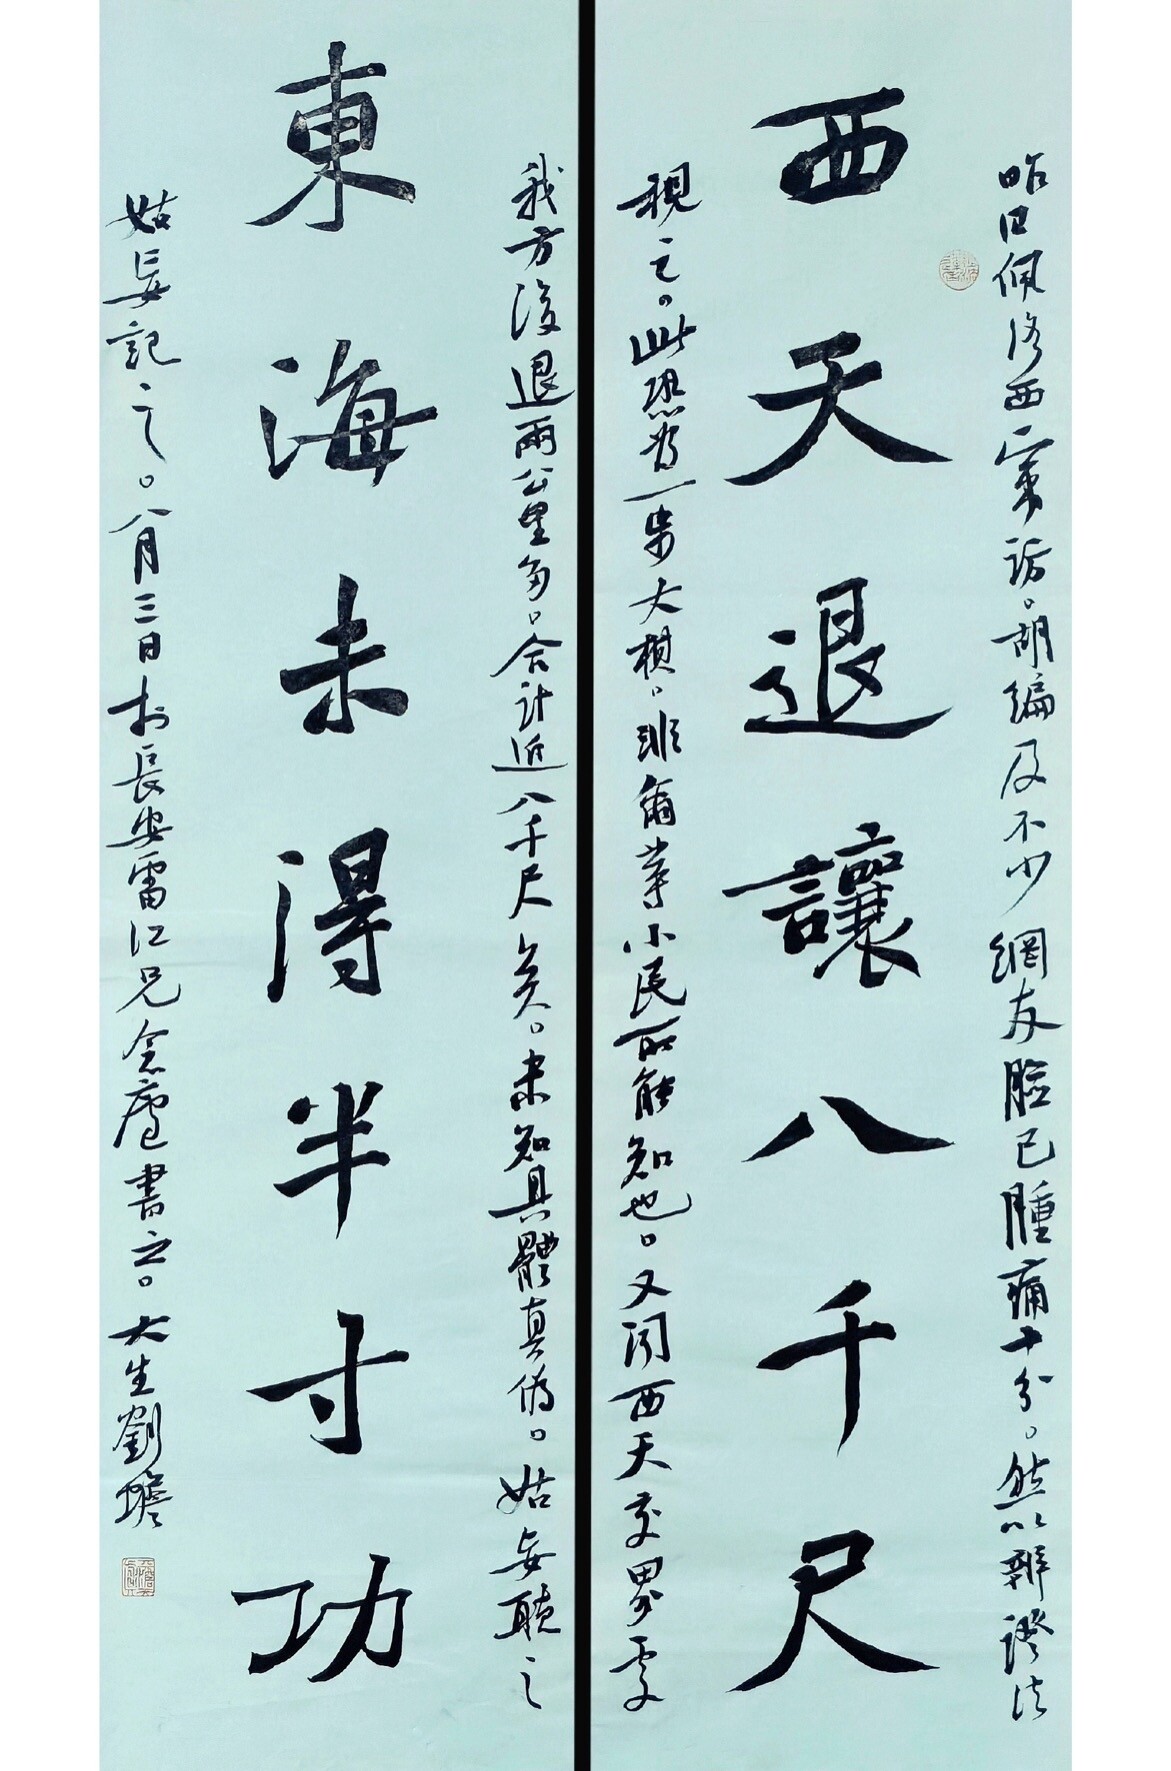 昨日佩洛西竄訪。胡編及不少網友臉已腫痛十分。然以辯證法
西天退讓八千尺
視之。此恐为一步大棋。非爾等小民所能知也。又闻西天交界處
我方後退兩公里多。合計近八千尺矣。未知具體真偽。姑妄聽之
東海未得半寸功
姑妄記之。八月三日於長安雷江兄念廬書之。大生劉璔